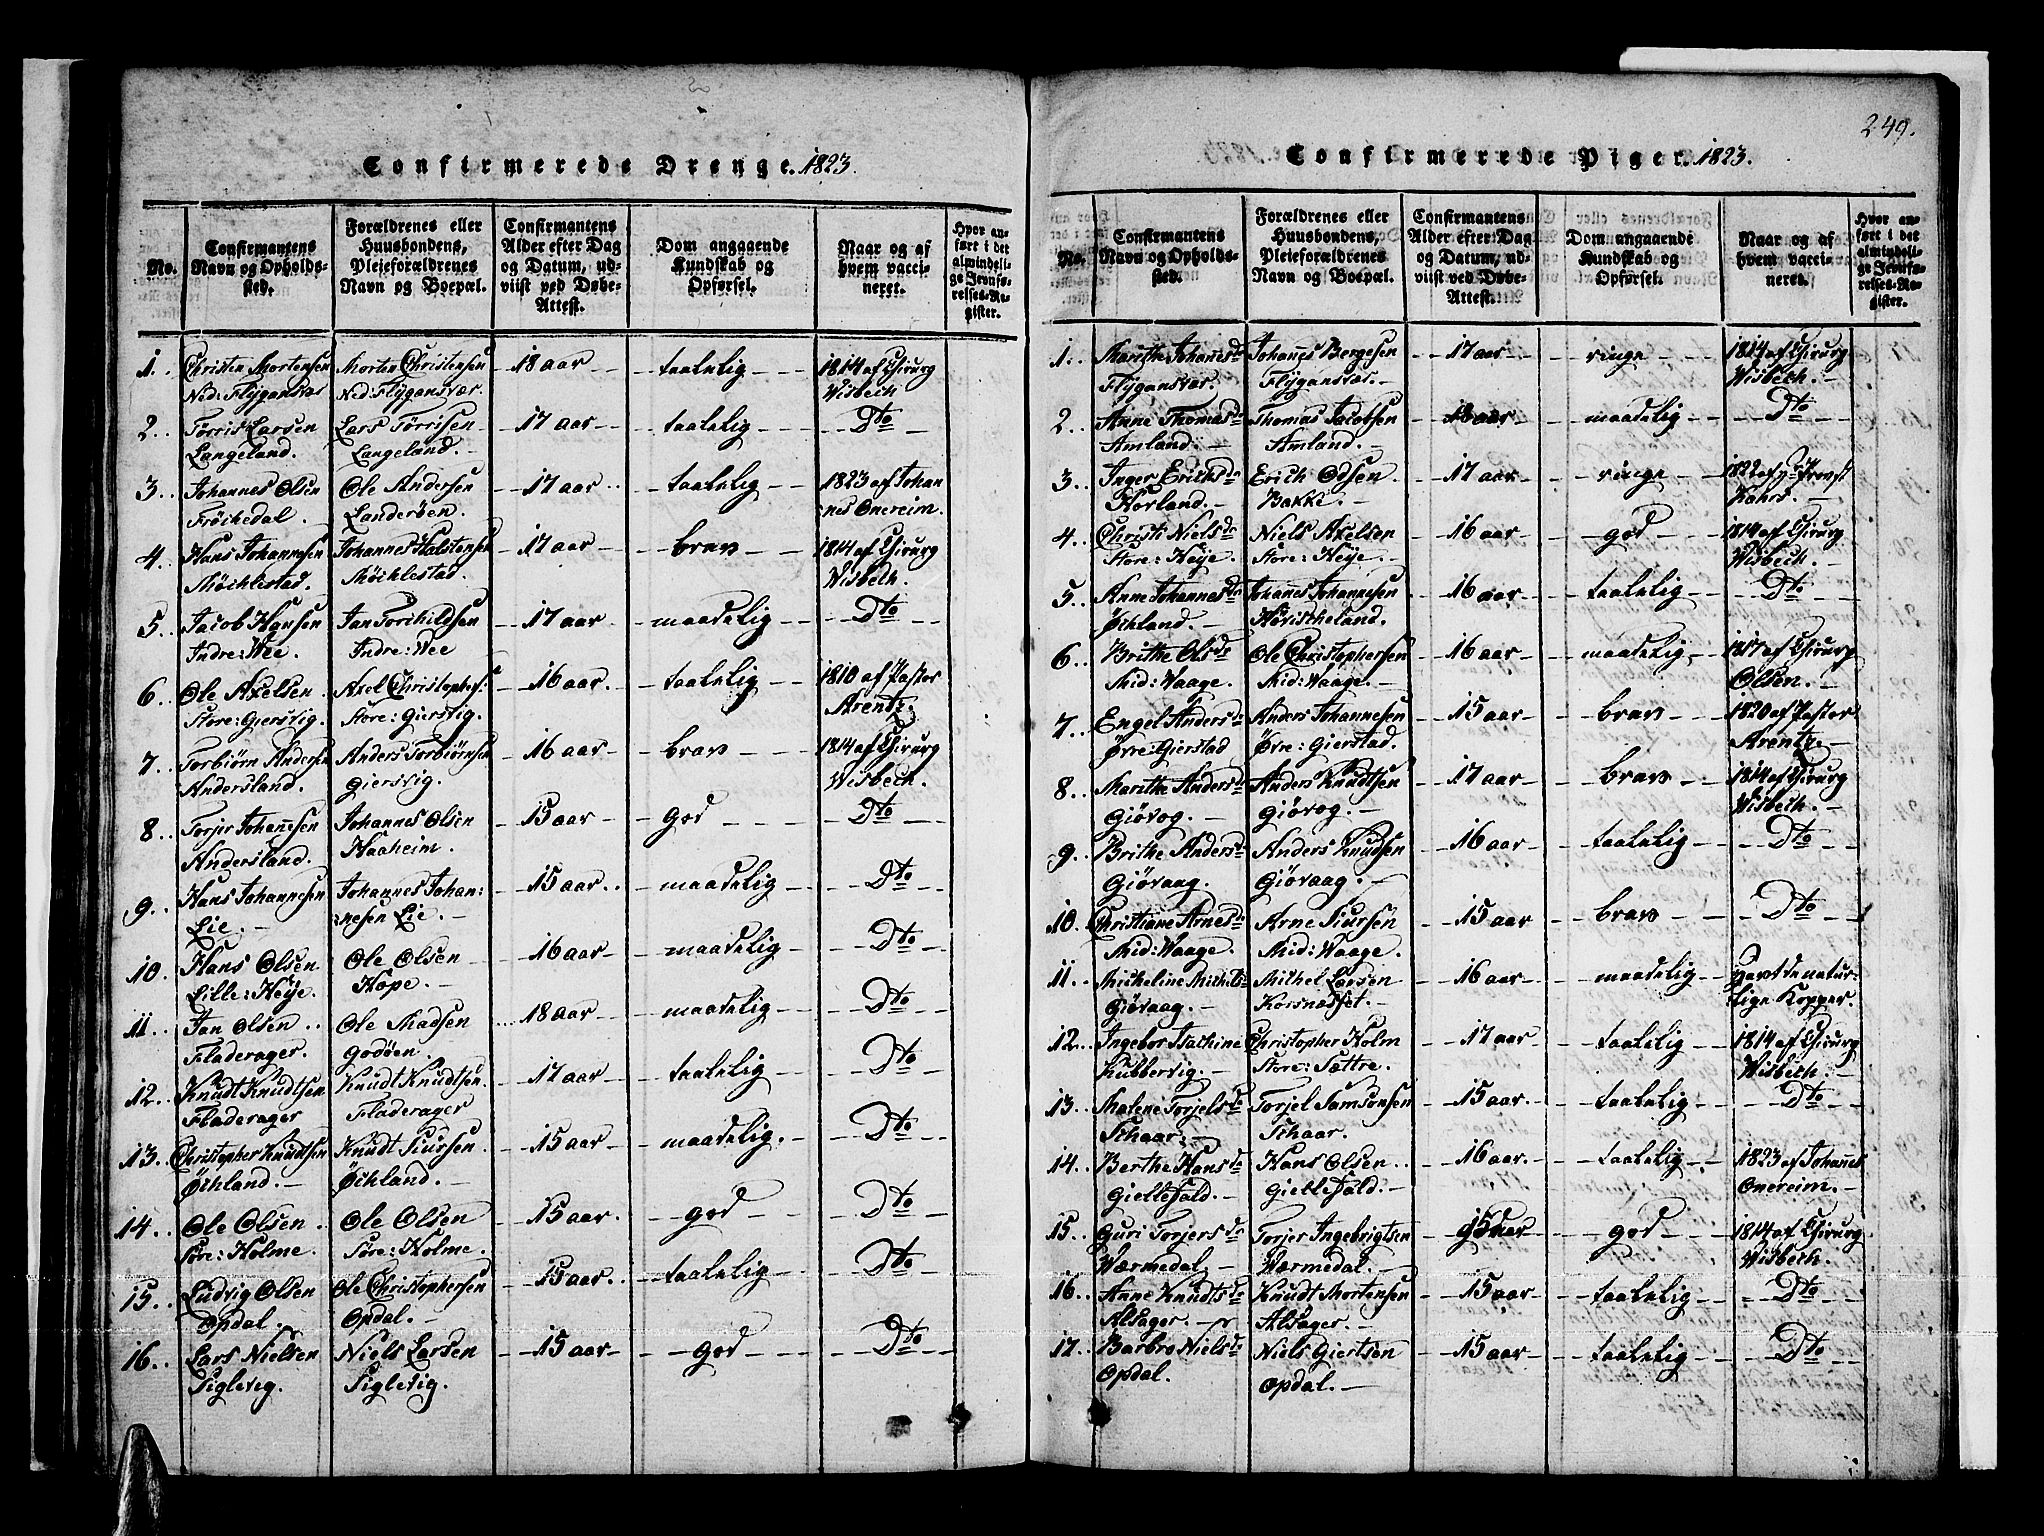 Confirmerede Drenge. 1823.
No.
Confirmantens Navn og Opholdssted.
Forældrenes eller Huusbondens, Plejeforældrenes Navn og Boepæl.
Confirmantens Alder efter Dag og Datum, udviist ved Døbe-Attest.
Dom angaaende Kundskab og Opførsel.
Naar og af hvem vaccineret.
Hvor anført i det almindelige Jevnførelses-Register.
1. Christen Mortensen Morten Christensen 18 aar taalelig 1814 af Chirurg
Ned: Flygansvær Ned: Flygansvær. Wisbech
2. Tørris Larsen Lars Tørrisen 17 aar taalelig Dto
Langeland. Langeland.
3. Johannes Olsen Ole Andersen 17 aar taalelig 1823 af Johan
Frøchedal. Landerøen. nes Onereim.
4. Hans Johannesen Johannes Halstensen 17 aar brav 1814 af Chirurg
Møchlestad. Møchlestad. Wisbech.
5. Jacob Hansen Jan Torchildsen 17 aar maadelig Dto
Indre: Wee. Indre: Wee
6. Ole Axelsen. Axel Christophers: 16 aar taalelig 1810 af Pastor
Store: Giersvig. Store: Giersvig. Arentz.
7. Torbiørn Andersen Anders Torbiørnsen 16 aar brav 1814 af Chirurg
Andersland. Giersvig. Wisbech.
8. Torjer Johannesen Johannes Olsen 15 aar god Dto
Andersland. Haaheim.
9. Hans Johannesen Johannes Johan: 15 aar maadelig Dto
Lie. nesen Lie.
10. Hans Olsen Ole Olsen 16 aar maadelig Dto
Lille: Høye. Hope.
11. Jan Olsen Ole Madsen 18 aar maadelig Dto
Fladerager. Godøen.
12. Knudt Knudtsen Knudt Knudtsen. 17 aar taalelig Dto
Fladerager Fladerager
13. Christopher Knudtsen Knudt Siursen 15 aar maadelig. Dto
Øchland. Øchland.
14. Ole Olsen Ole Olsen 15 aar. god Dto
Søre: Holme. Søre: Holme.
15. Ludvig Olsen Ole Christophersen 15 aar. taalelig Dto
Opdal. Opdal.
16. Lars Nielsen Niels Larsen 15 aar god Dto
Siglevig. Siglevig.
249.
Confirmerede Piger. 1823.
No.
Confirmantens Navn og Opholdssted.
Forældrenes eller Huusbondens, Plejeforældrenes Navn og Boepæl.
Confirmantens Alder efter Dag og Datum, udviist ved Døbe-Attest.
Dom angaaende Kundskab og Opførsel.
Naar og af hvem vaccineret.
Hvor anført i det almindelige Jevnførelses-Register.
1. Marithe Johannesdr Johannes Bergesen 17 aar ringe 1814 af Chirurg
Flygansvær. Flygansvær. Wisbech.
2. Anne Thomasdr Thomas Jacobsen aar maadelig Dto
Amland. Amland.
3. Inger Erichsdr Erich Odsen 17 aar ringe 1822 af Provst
Horland. Bakke.
4. Christi Nielsdr Niels Axelsen 16 aar god 1814 af Chirurg
Store: Høye. Store: Høye. Wisbech.
5. Anne Johannesdr Johannes Johannesen 16 aar taalelig Dto
Øchland.
6. Brithe Olsdr Ole Christophersen 16 aar maadelig 1817 af Chirurg
Mid: Waage. Mid: Waage. Olsen.
7. Engel Andersdr Anders Johannesen 15 aar brav 1820 af Pastor
Øvre: Gierstad Øvre: Gierstad. Arentz
8. Marithe Andersdr Anders Knudtsen 17 aar brav 1814 af Chirurg
Giøvog. Giøvog. Wisbech.
9. Brithe Andersdr Anders Knudsen 16 aar taalelig Dto
Giøvaag. Giøvaag.
10. Christiane Arnesdr Arne Siursen 15 aar brav Dto
Mid: Waage. Mid: Waage.
11. Micheline Michels Michel Larsen 16 aar maadelig havt de natur-
Giøvaag. Korsnæsset. lige Kopper.
12. Ingebor Mathine Christopher Holm 17 aar taalelig 1814 af Chirurg
Kubbervig. Store: Sættre. Wisbech.
13. Malene Torjelsdr Torjel Samsonsen 15 aar taalelig Dto
Schaar. Schaar.
14. Berthe Hansdr Hans Olsen 16 aar. taalelig 1823 af Johannes
Giellefald. Giellefald. Onereim.
15. Guri Torjersdr Torjer Ingebrigtsen 15 aar god 1814 af Chirurg
Wærmedal. Wærmedal. Wisbech.
16. Anne Knudtsdr Knudt Mortensen 15 aar taalelig Dto
Alsager. Alsager.
17. Barbro Nielsdr Niels Giertsen 15 aar taalelig Dto
Opdal. Opdal.